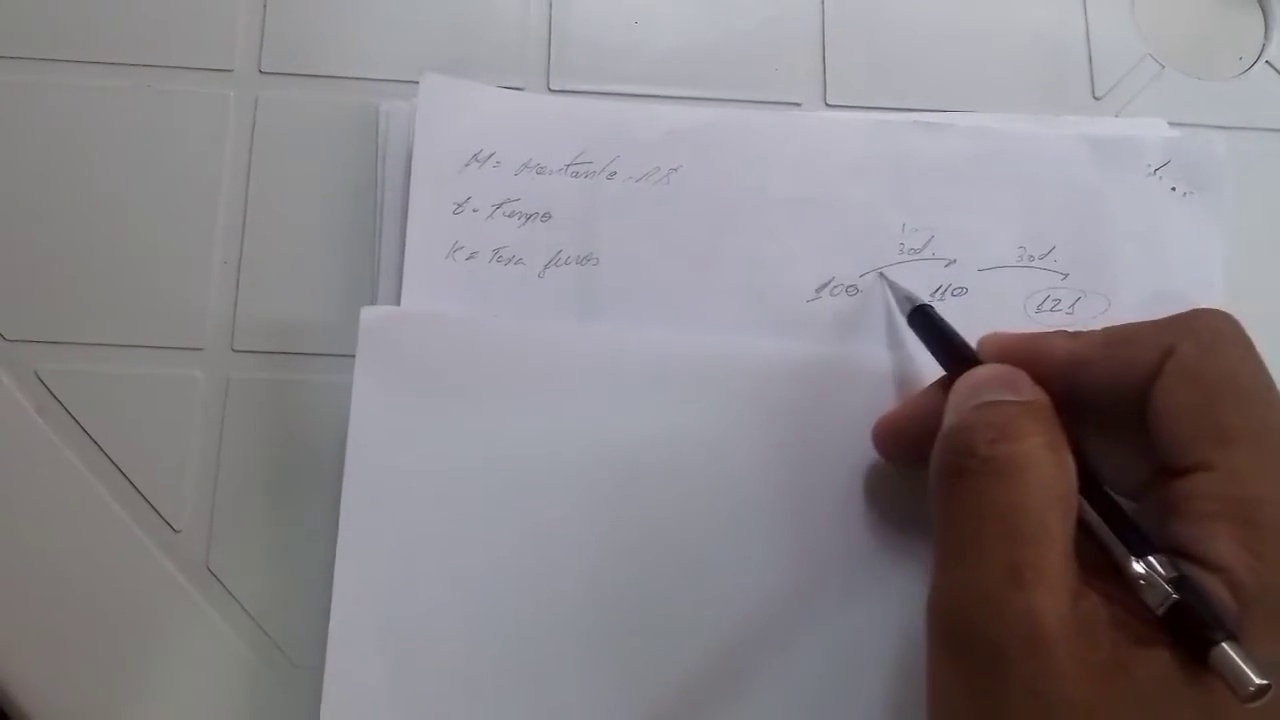 M = Montante . R$
t = Tempo
K = Taxa juros
30d. 30d.
100 110 121